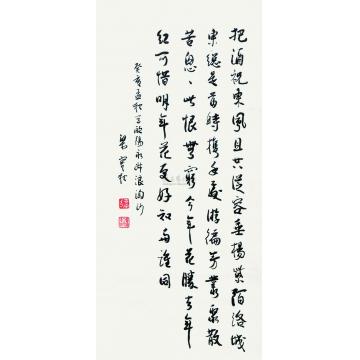 把酒祝東風且共從容垂楊紫陌洛城
東總是當時攜手處游徧芳叢聚散
苦怱怱此恨無窮今年花勝去年
紅可惜明年花更好知與誰同
癸亥孟秋写歐陽永叔浪淘沙
梁實秋